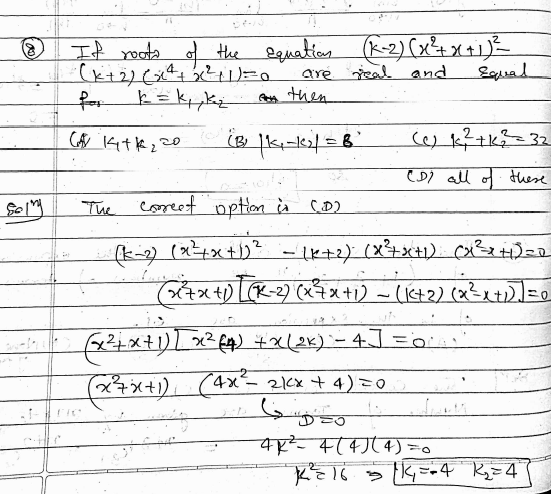 (8) If roots of the equation (k-2)(x²+x+1)²-
(k+2)(x⁴+x²+1)=0 are real and equal
for k = k₁, k₂ then
(A) k₁+k₂=0 (B) |k₁-k₂| = 8 (C) k₁²+k₂²=32
(D) all of these
Solⁿ) The correct option is (D)
(k-2) (x²+x+1)² - (k+2) (x²+x+1) (x²-x+1)=0
(x²+x+1) [(k-2)(x²+x+1) - (k+2)(x²-x+1)]=0
(x²+x+1) [x²(-4) + x(2k) - 4] = 0
(x²+x+1) (4x² - 2kx + 4) = 0
↳ D=0
4k² - 4(4)(4) = 0
k² = 16 ⇒ k₁=-4 k₂=4